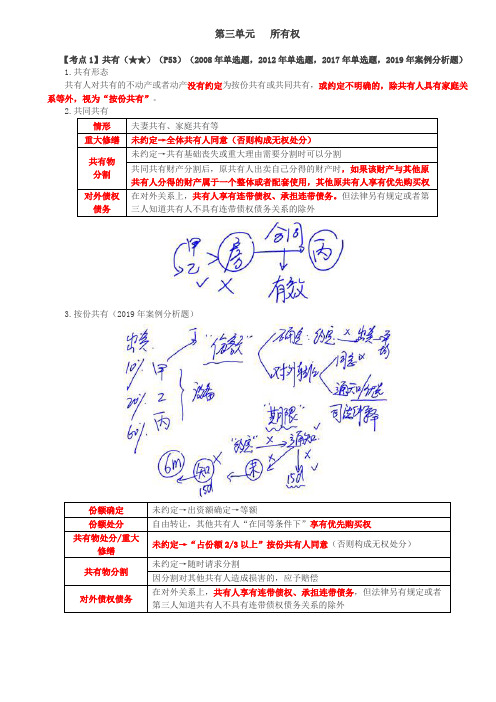 第三单元 所有权
【考点1】共有（★★）（P53）（2008年单选题，2012年单选题，2017年单选题，2019年案例分析题）
1.共有形态
共有人对共有的不动产或者动产没有约定为按份共有或共同共有，或约定不明确的，除共有人具有家庭关
系等外，视为“按份共有”。
2.共同共有
情形 夫妻共有、家庭共有等
重大修缮 未约定→全体共有人同意（否则构成无权处分）
共有物
分割
未约定→共有基础丧失或重大理由需要分割时可以分割
共同共有财产分割后，原共有人出卖自己分得的财产时，如果该财产与其他原
共有人分得的财产属于一个整体或者配套使用，其他原共有人享有优先购买权
对外债权
债务
在对外关系上，共有人享有连带债权、承担连带债务。但法律另有规定或者第
三人知道共有人不具有连带债权债务关系的除外
甲 房 合同 丙
乙
✓ × 有效
3.按份共有（2019年案例分析题）
出资
10% 甲
20% 乙 设备
60% 丙
“份额”
确定：约定 × 出资 × 等
对外转让
同意×
通知
司法解释
“期限”
“约定” × 通知 ✓
15d
6m 知 × 未
15d
份额确定 未约定→出资额确定→等额
份额处分 自由转让，其他共有人“在同等条件下”享有优先购买权
共有物处分/重大
修缮
未约定→“占份额2/3以上”按份共有人同意（否则构成无权处分）
共有物分割
未约定→随时请求分割
因分割对其他共有人造成损害的，应予赔偿
对外债权债务
在对外关系上，共有人享有连带债权、承担连带债务，但法律另有规定或者
第三人知道共有人不具有连带债权债务关系的除外